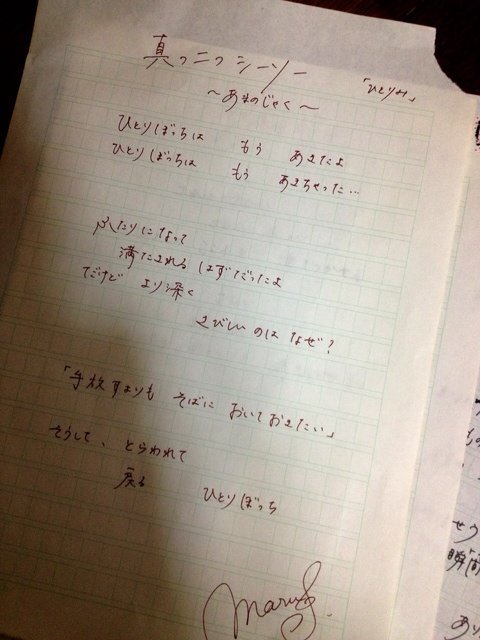 真っ二つシーソー
「ひとりみ」
～あまのじゃく～
ひとりぼっちは もう あきたよ
ひとりぼっちは もう あきちゃった…
ふたりになって
満たされる はずだったよ
だけど より深く
さびしいのは なぜ?
「手放すよりも そばに おいておきたい」
そうして、とらわれて
戻る ひとりぼっち
せう
瞬間
あり